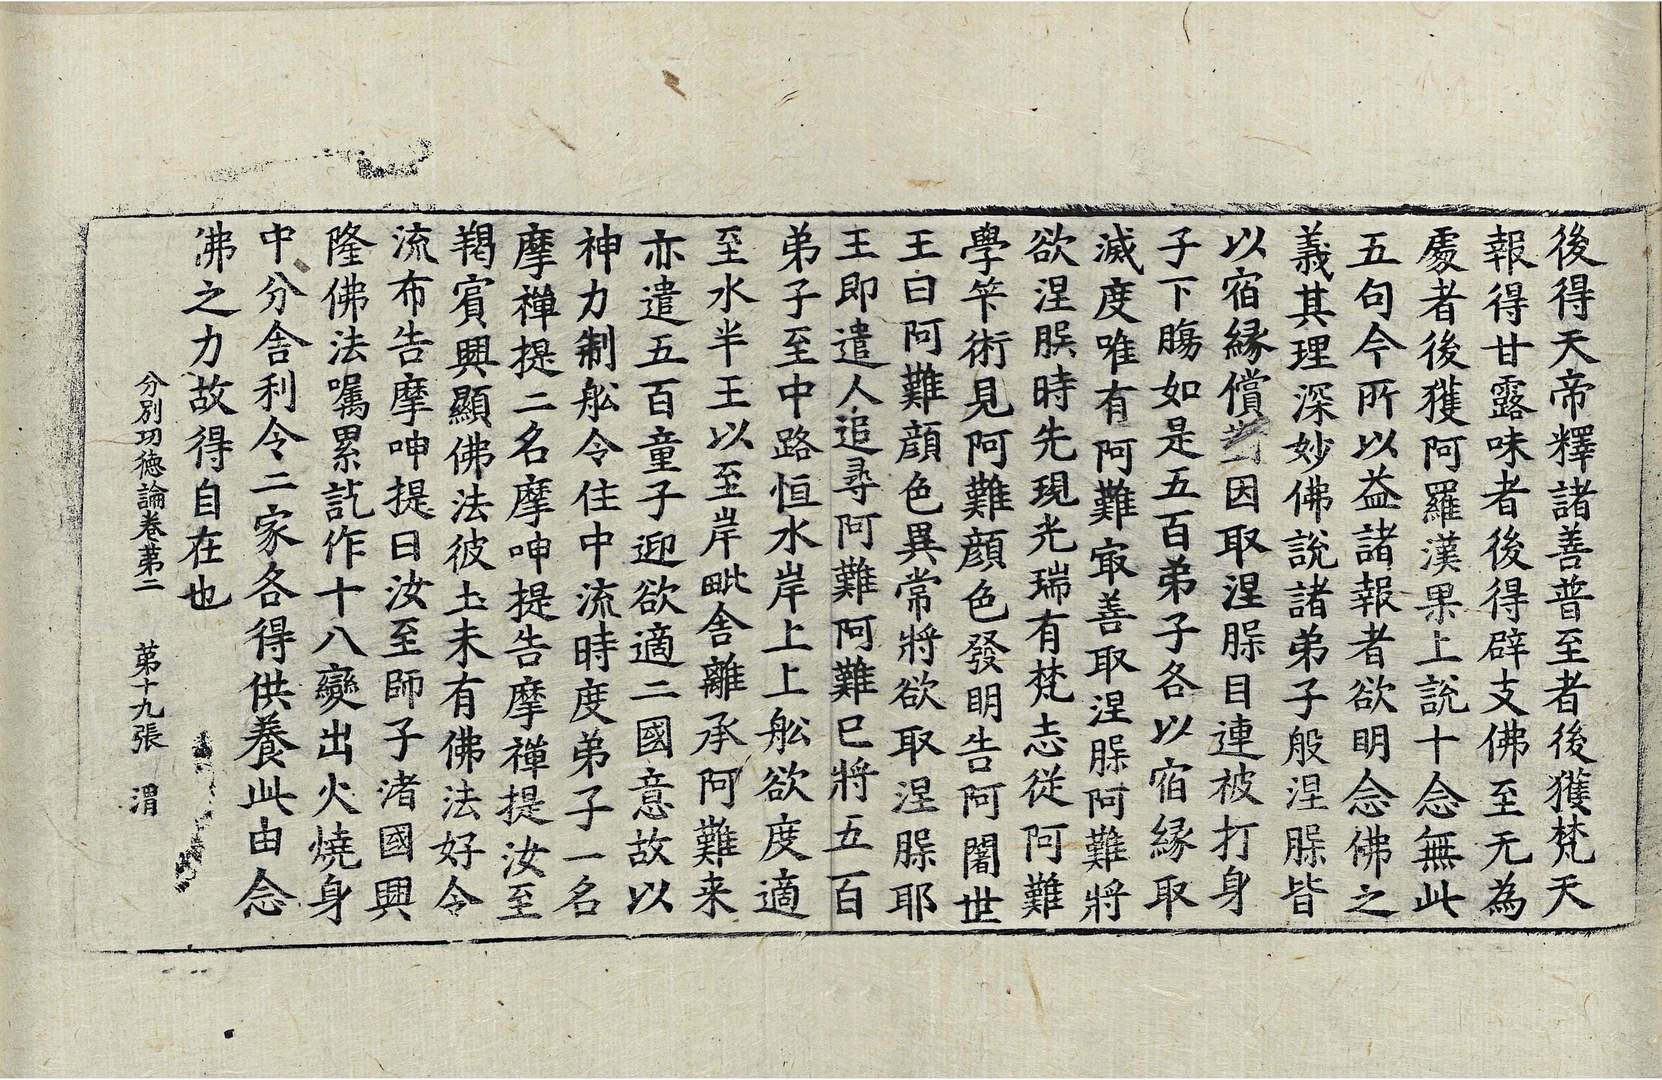 後得天帝釋諸善普至者後獲梵天
報得甘露味者後得辟支佛至无為
處者後獲阿羅漢果上說十念無此
五句今所以益諸報者欲明念佛之
義其理深妙佛說諸弟子般涅槃皆
以宿緣償對因取涅槃目連被打身
子下腸如是五百弟子各以宿緣取
滅度唯有阿難㝡善取涅槃阿難將
欲涅槃時先現光瑞有梵志從阿難
學笇術見阿難顔色發明告阿闍世
王曰阿難顔色異常將欲取涅槃耶
王即遣人追尋阿難阿難已將五百
弟子至中路恒水岸上上舩欲度適
至水半王以至岸毗舍離承阿難来
亦遣五百童子迎欲適二國意故以
神力制舩令住中流時度弟子一名
摩禪提二名摩呻提告摩禪提汝至
羯賓興顯佛法彼土未有佛法好令
流布告摩呻提曰汝至師子渚國興
隆佛法囑累訖作十八變出火燒身
中分舍利令二家各得供養此由念
佛之力故得自在也
分別功德論卷苐二 苐十九張 渭